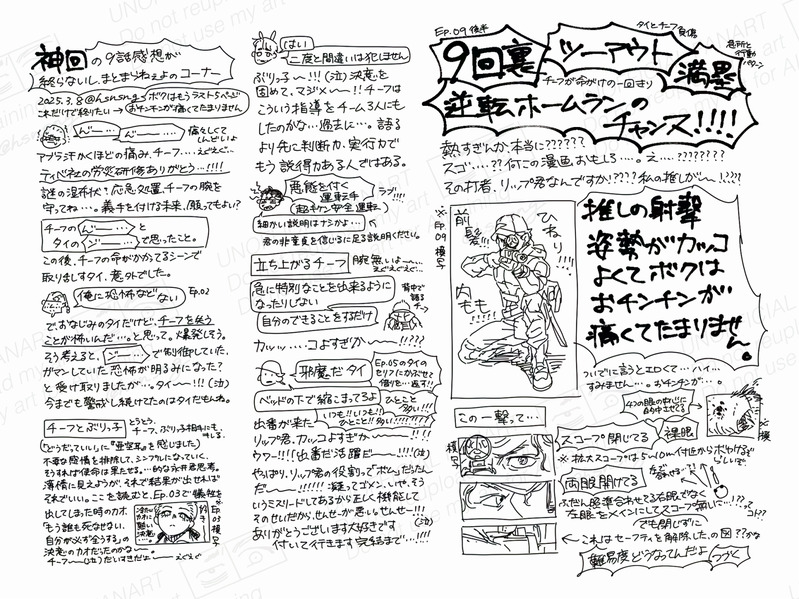 神回の9話感想が
終らないし、まとまらねぇよのコーナー
2025.3.8@hsnsng ボクはもうラスト5ページ
これだけで終りたい→お チンチンが痛くてたまりません
んじー…
んじー…
痛々しくて
しんどいよ
アブラ汗かくほどの痛み、チーフ…えぐえぐ…
ティベ社の労災研修ありがとう…!!!!
謎の湿布状!応急処置、チーフの腕を
守ってね…。義手を付ける未来、了解ってもよい?
チーフの
んじー…と
タイの
ジー…
で思ったこと。
この後、チーフの命がかかってるシーンで
取り乱すタイ、意外でした。
俺に恐怖など
ない
EP.02
でおなじみのタイだけど、チーフを失う
ことが怖いんだ…。と思って。爆発しそう。
そう考えると、ジー…で制御していた、
ガマンしていた恐怖が明るみになった?
と受け取りましたが…。タイ〜!!!(泣)
今までも警戒し続けてたのはタイだもんね。
チーフとぶりっ子
とうとう、
チーフ、ぶりっ子相手にも
「どうだっていい」に"亜空気"を感じました
不要な感情を排除して、シンプルになっていく、
そうすれば使命は果たせる…的な永井君思考。
薄情に見えようが、それで結果が出せれば
それでいい。ここを読むと、EP.03で犠牲を
出してしまった時のカオ
「もう誰も死なせない、
自分が必ず全うする」の
決意のカオだったのかな〜。
チーフ〜(泣)だいすきだよ〜えぐえぐ
EP.03
模写
はい
二度と間違いは犯しません
ぶりっ子〜!!!(泣)決意を
固めて、マジメ〜!!チーフは
こういう指導をチーム3人にも
したのかな…過去に…。語る
より先に判断力、実行力で
もう説得力ある人ではある。
悪態を付く
運転手
(超キケン安全運転)
ラブ!!!!
細かい説明はナシかよ…
君の非童貞を信じるに足る説明ください。
立ち上がるチーフ
腕無いよ〜…
えぐえぐえぐ…
急に特別なことを出来るように
なったりしない
自分のできることをするだけ
背中で
語る
チーフ
カッッ….コよすぎか〜!!!!
邪魔だタイ
EP.05のタイの
セリフにかぶせて
借りを…返す!!
ベッドの下で縮こまってろよ
出番が来た
いつも!!いつも!!
ひとこと多い!!!!
ひとこと
多い!!!
リップ君、カッコよすぎか〜!!!!
ウワー!!!!出番だ活躍だー!!!!(泣)
やっぱり、リップ君の役割ってボムだったん
だ〜!!!!!!疑ってゴメン、いや、そう
いうミスリードしてあるから正しく機能して
そのせいだから、せんせーが悪い。せんせー!!!
ありがとうございます大好きです(泣)
付いて行きます完結まで…!!!!
EP.09 後半
9回裏
ツーアウト
タイとチーフ
負傷
満塁
チーフが命がけの一回きり
逆転ホームランの
チャンス!!!!
熱すぎんか、本当に??????
スゴ….??何この漫画おもしろ….。え….???????
その打者、リップ君なんですか!????私の推しが〜!????
※
EP
09
模写
前髪!!!
ひねり!!!
内もも!!!!!
推しの射撃
姿勢がカッコ
よくてボクは
おチンチンが
痛くてたまりま
せん。
ついでに言うとエロくて…ハイ…
すみません…。おチンチンが…。
この一撃って…
模写
4つの眼の中心に
合わせてる
スコープ閉じてる
裸眼
※模
※拡大スコープは5〜10m付近からボヤける
らしいで
両眼開けてる
ふだん照準合わせてる右眼でなく
左眼をメインにしてスコープ無しに…!??
コト??
でも閉じずに
←これはセーフティを解除した、の図??かな
難易度どうなってんだよ
つづく